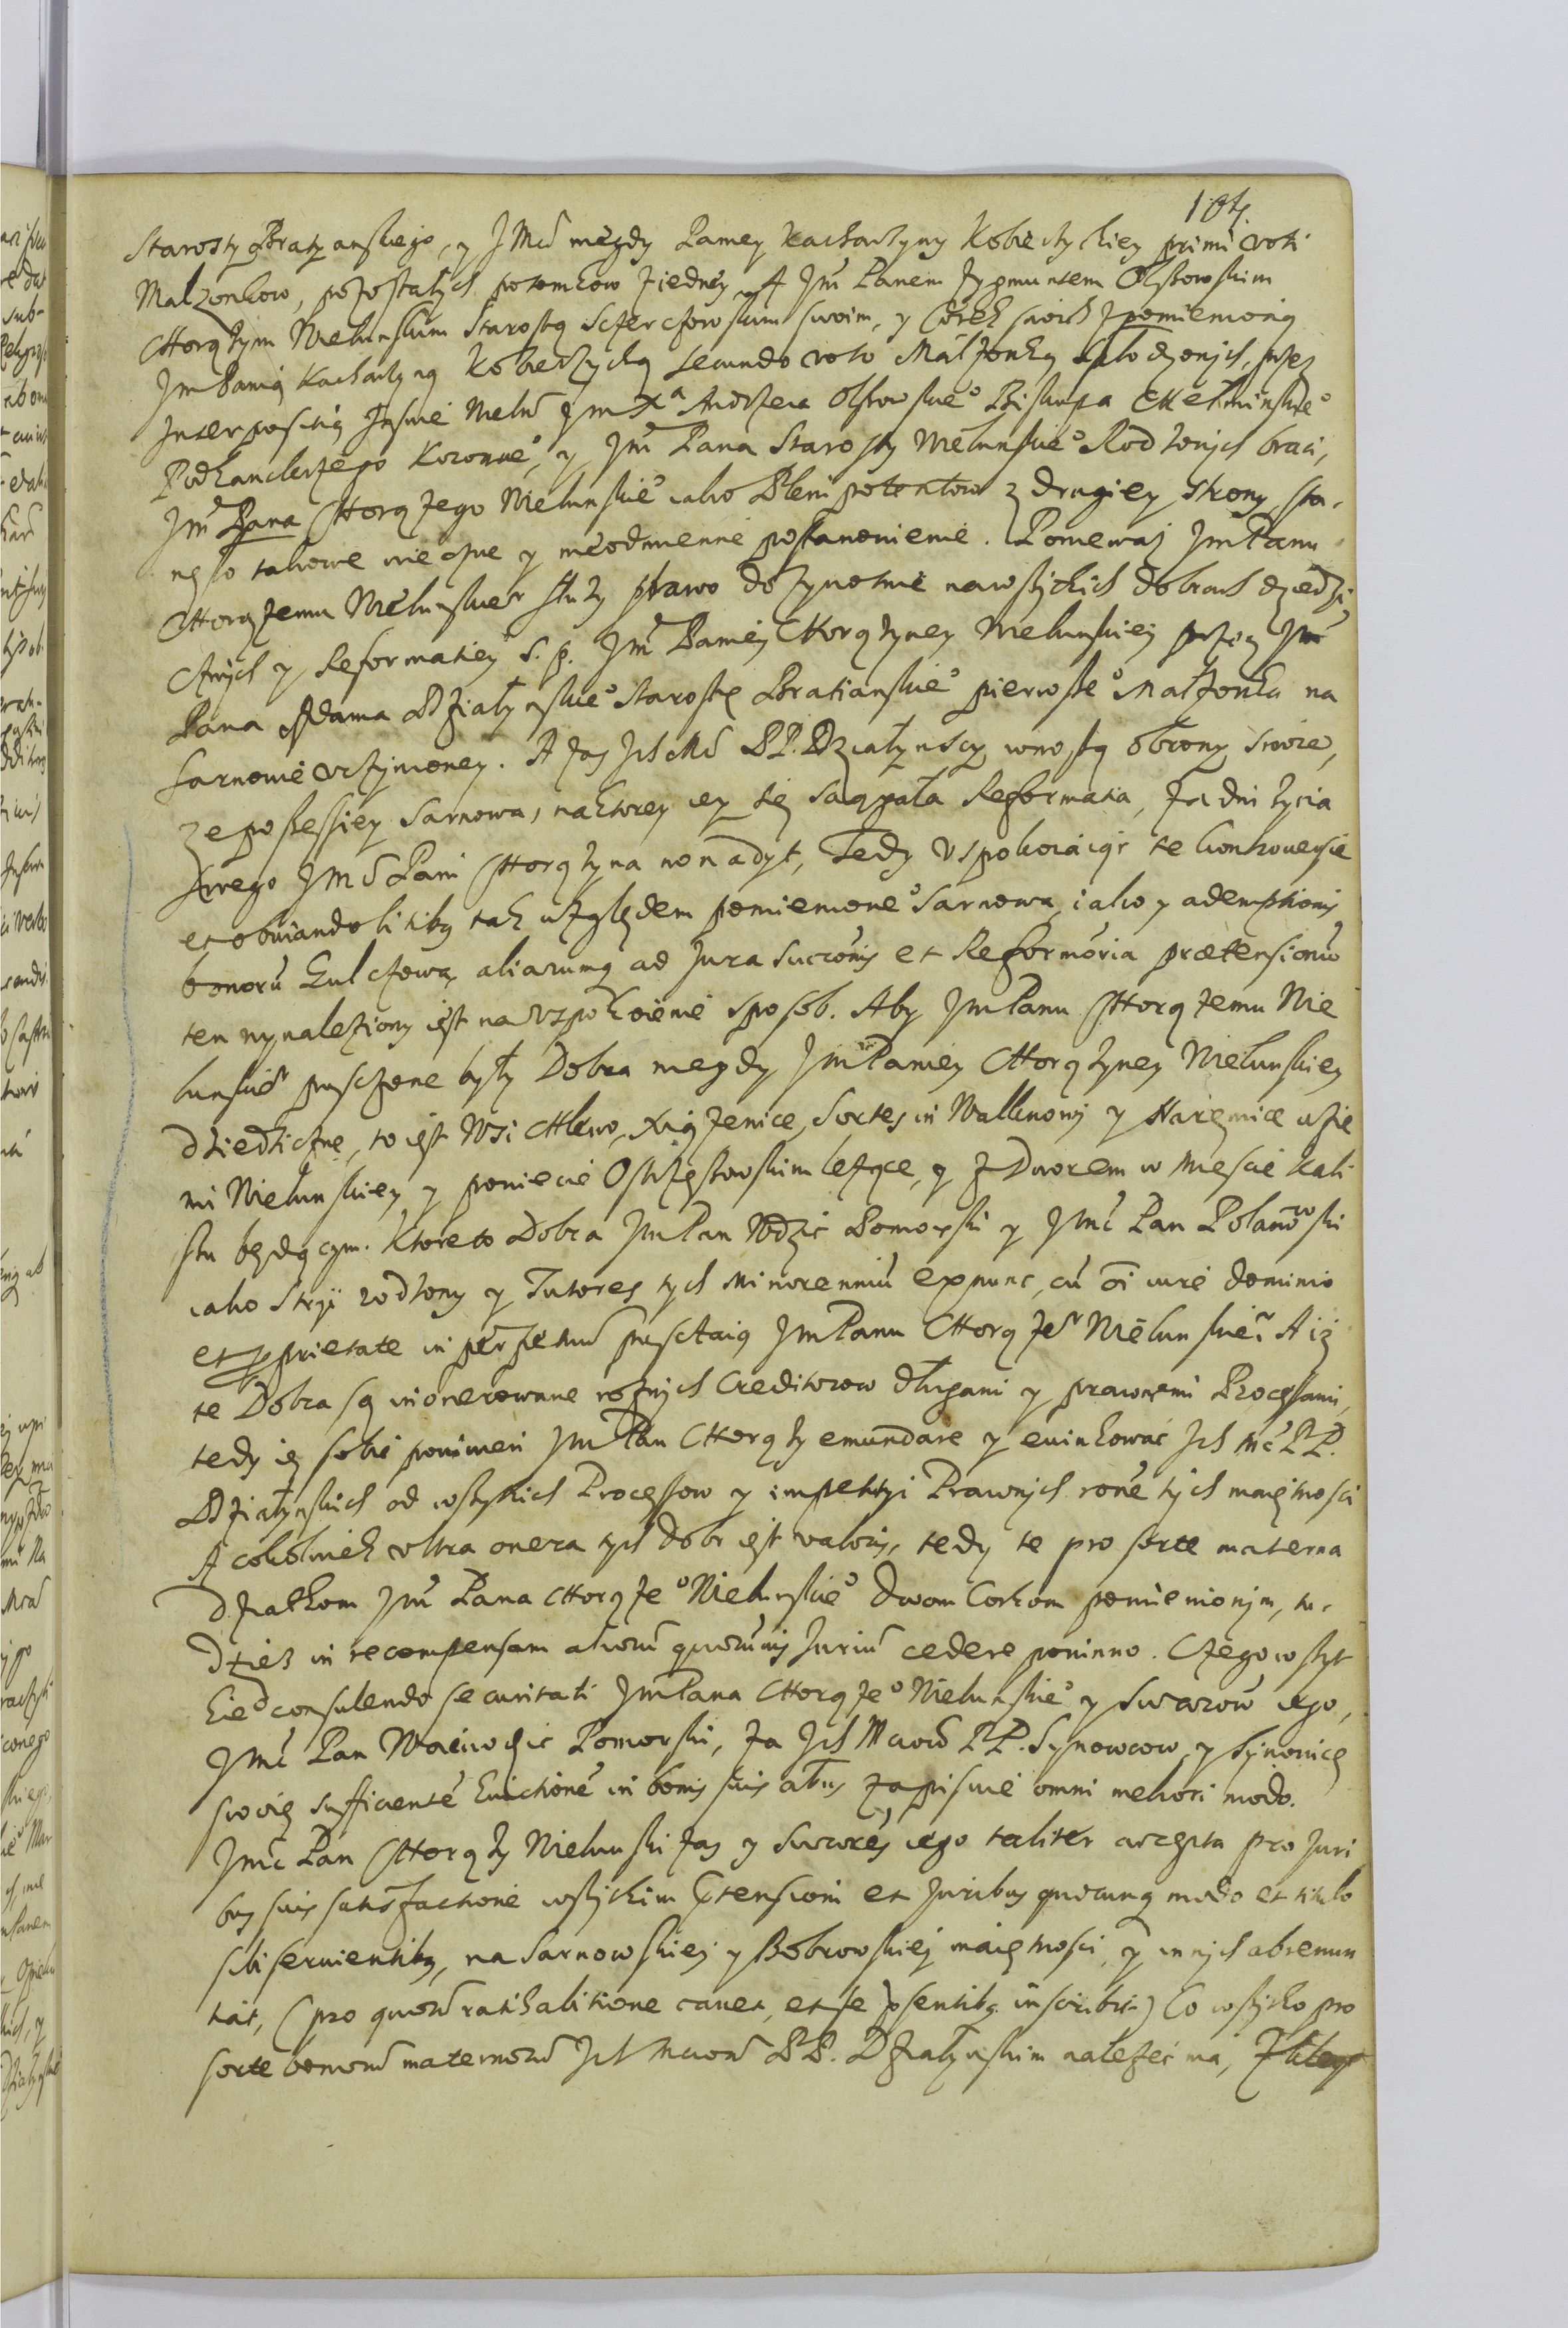 104.
Starosty Bratyanskiego, y JMci niegdy Paniey Kacharzyny Kobierzyckiey primi voti
Malzonkow, pozostałych potomkow z iedney, A Jm̃ Panem Zygmuntem Olszowskim
Chorążym Wielunskim Starostą Sczerczowskim swoim, y Corek swoich z pomienioną
Jm Panią Kacharzyną Kobierzycką secundo voto Małżonką spłodzonych, przez
Interpositią Jasnie Wielm̃ Jm Xa Andrzeia Olszowskieo Biskupa Chełminskieo
Podkanclerzego Koronneo, y Jm̃ Pana Starosty Wielunskieo Rodzonych braci,
Jm̃ Pana Chorążego Wielunskieo iako Plenipotentow z drugiey strony, sta-
nęło takowe wieczne y nieodmienne postanowienie. Poniewaz Jm Panu
Chorążemu Wielunskieu służy prawo dozywotnie na wszytkich dobrach dziedzi
cznych y Reformatiey s. p. Jm̃ Paniey Chorążyney Wielunskiey przez Jm̃
Pana Adama Działynskieo Starostę Bratianskieo pierwszeo Małżonka na
Sarnowie uczynioney. A zas Ich Mci PP. Działynscy wnoszą obrony swoie,
ze possessiey Sarnowa, na ktorey iey się sciągała Reformatia, za dni zycia
swego JMci Pani Chorążyna non adyt, Tedy uspokoiaiąc te kontrouersie
et obuiando litibus tak względem pomienioneo Sarnowa, iako y ademptionis
bonorũ Gulczowa, aliarumq ad Jura Succōnis et Reformōria prætensionũ
ten wynaleziony iest na uspokoienie sposob. Aby Jm Panu Chorążemu Wie
lunskieu pusczone były Dobra niegdy Jm Paniey Chorążyney Wielunskiey
Dziedziczne, to iest Wsi Chlewo, Xiążenice, Sortes in Wallknowy y Haręmice w zie
mi Wielunskiey y powiecie Ostrzeszowskim leżące, y z Dworem w Miescie Kali
szu będącym. Ktore to Dobra Jm Pan Wdzic Pomorski y Jm̃c Pan Polanowski
iako Stryi rodzony y Tutores tych Minorenniũ ex nunc, cũ oi iure dominio
et pprietate in perpetuũ pusczaią Jm Panu Chorążeu Wielunskieu A iż
te Dobra są inonerowane rożnych Creditorow długami y prawnemi Processami,
tedy ie sobie powinien Jm Pan Chorąży emundare y ewinkować Ich Mc PP.
Działynskich od wszytkich Processow y impetityi Prawnych rōne tych maiętnosci
A cokolwiek ultra onera tych dobr iest valoris, tedy te pro sorte materna
Dziatkom Jm̃ Pana Chorążeo Wielunskieo dwom Corkom pomienionym, tu-
dziesz in recompensam aliorũ quorũuis Juriũ cedere powinno. Czego wszyt
kieo consulendo securitati Jm Pana Chorążeo Wielunskieo y Succorow iego,
Jm̃c Pan Woiewodzic Pomorski, za Ich Mciow PP. Synowcow, y Synowicę
swoię sufficientē Euictionē in bonis suis aliis zapisuie omni meliori modo.
Jm̃c Pan Chorąży Wielunski zas y Succores iego taliter accepta pro Juri
bus suis satisfactione wszytkim Prtensioni et Juribus quocunq modo et titulo
sibi seruientibus, na Sarnowskiey y Bobrowskiey maiętnosci, y innych abrenun
tiat, (pro quorũ ratihabitione cauet, et se psentibus inscribit) Co wszytko pro
sorte bonorũ maternorũ Ich Mciom PP. Działynskim należeć ma,